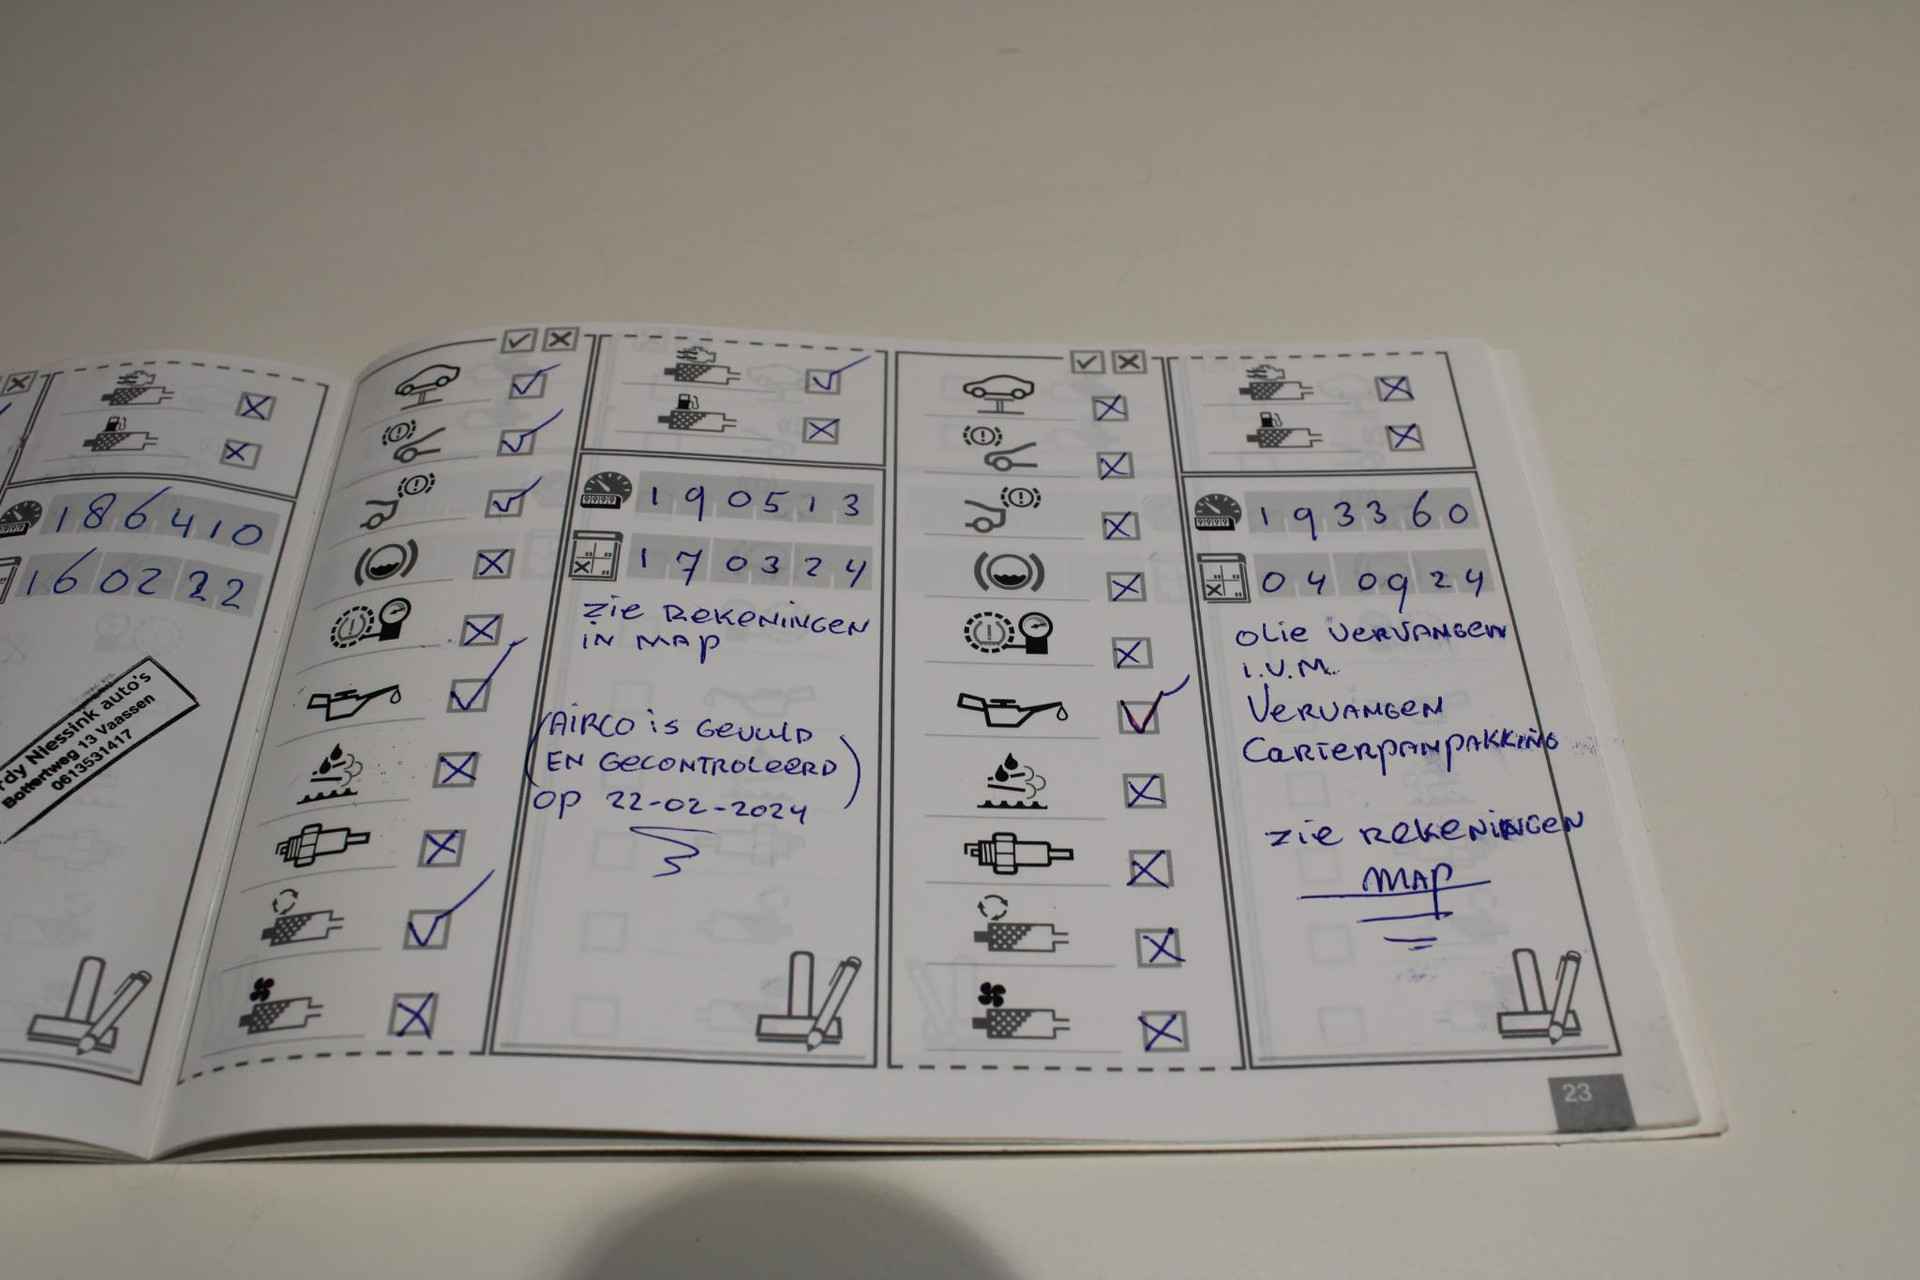 186410
160222
rdy Niessink auto's
Bottertweg 13 Vaassen
0613531417
190513
170324
Zie REKENINGEN
in MAP
(AIRCO is GEVULD
EN GECONTROLEERD)
OP 22-02-2024
193360
040924
OLIE VERVANGEN
I.V.M.
VERVANGEN
CARTERPANPAKKING
Zie REKENINGEN
MAP
23